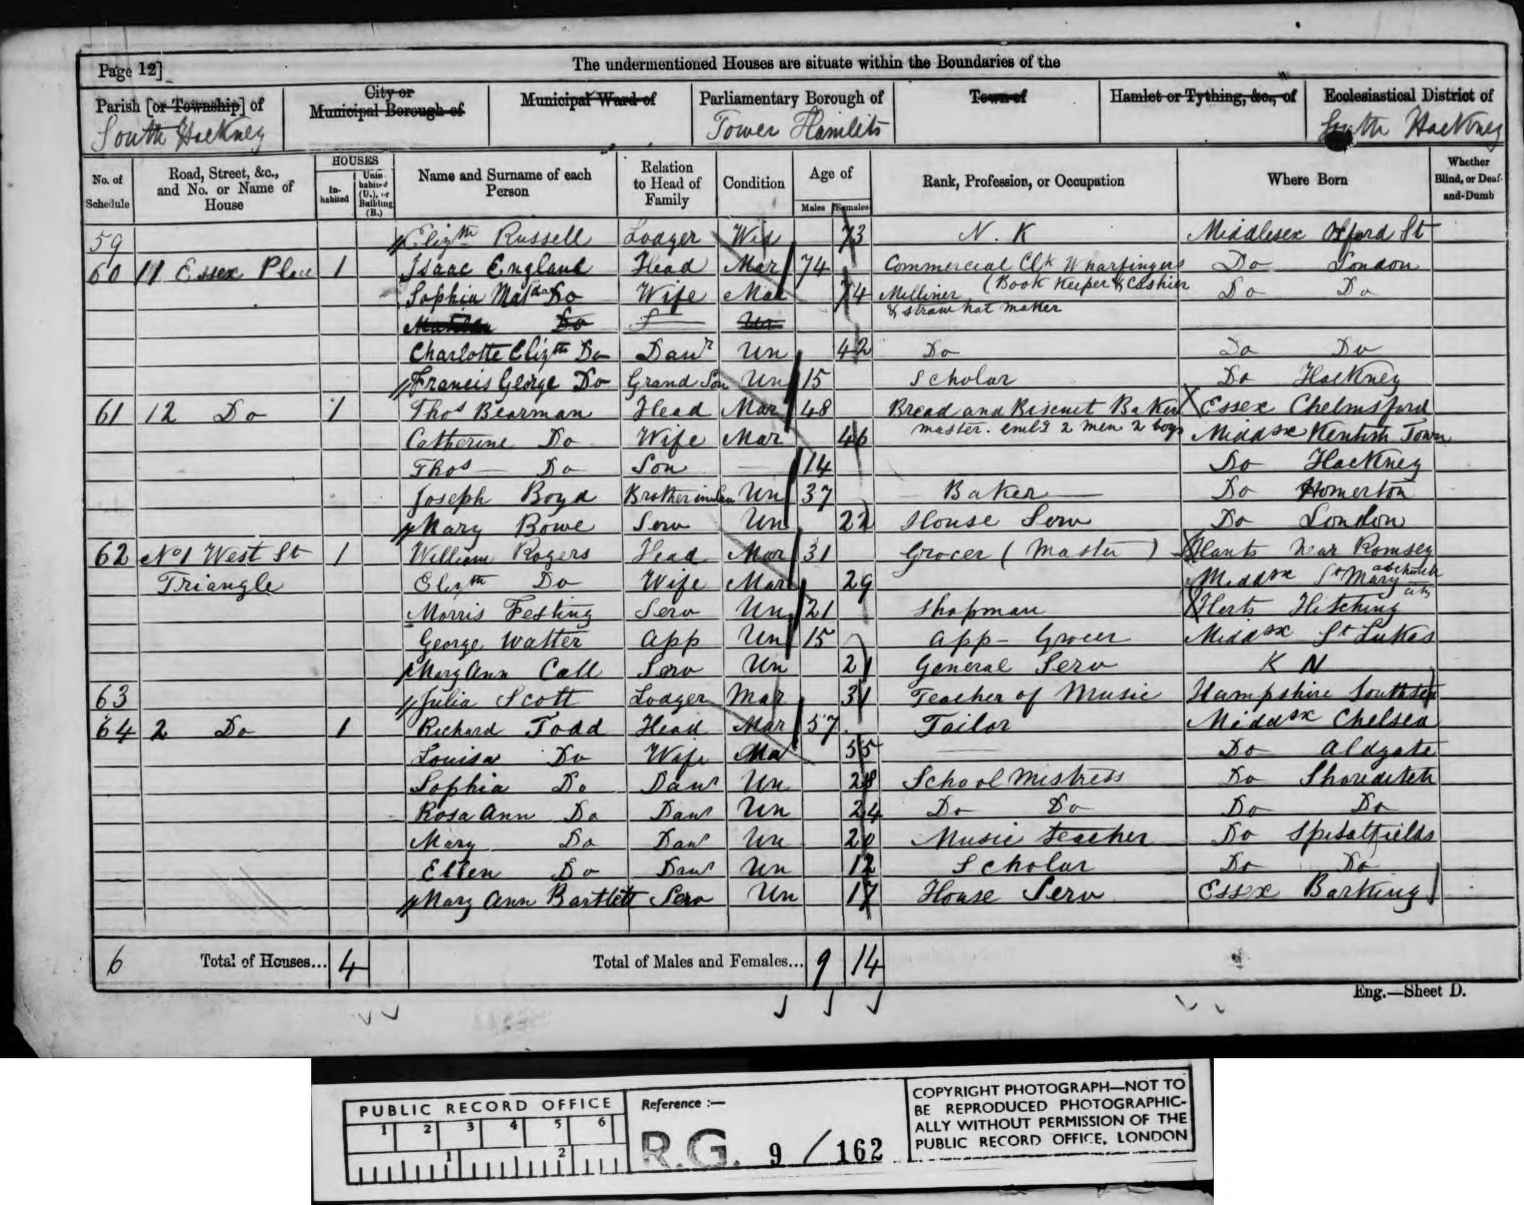 Page 12]
The undermentioned Houses are situate within the Boundaries of the
Parish [or Township] of South Hackney
City or Municipal Borough of
Municipal Ward of
Parliamentary Borough of Tower Hamlets
Town of
Hamlet or Tything, &c., of
Ecclesiastical District of South Hackney
No. of Schedule
Road, Street, &c., and No. or Name of House
HOUSES
In-habited
Unin-habited (U.), or Building (B.)
Name and Surname of each Person
Relation to Head of Family
Condition
Age of
Males
Females
Rank, Profession, or Occupation
Where Born
Whether Blind, or Deaf-and-Dumb
59 Elizth Russell Lodger Wid 73 N. K Middlesex Oxford St
60 11 Essex Place 1 Isaac England Head Mar 74 Commercial Clk Wharfingers (Book Keeper & Cashier Do London
Sophia Do Wife Mar 74 Milliner & straw hat maker Do Do
Do
Charlotte Elizth Do Daur Un 42 Do Do Do
Francis George Do Grand Son Un 15 Scholar Do Hackney
61 12 Do 1 Thos Bearman Head Mar 48 Bread and Biscuit Baker master. emlg 2 men 2 boys Essex Chelmsford
Catherine Do Wife Mar 46 Middsx Kentish Town
Thos Do Son 14 Do Hackney
Joseph Boyd Brother in Law Un 37 Baker Do Homerton
Mary Bowe Serv Un 22 House Serv Do London
62 No 1 West St 1 William Rogers Head Mar 31 Grocer (Master) Hants Near Romsey
Triangle Elizth Do Wife Mar 29 Middsx St Mary
Morris Festing Serv Un 21 Shopman Herts Hitching
George Watter App Un 15 App - Grocer Middsx St Lukes
Mary Ann Call Serv Un 21 General Serv K N
63 Julia Scott Lodger Mar 31 Teacher of Music Hampshire Southsea
64 2 Do 1 Richard Todd Head Mar 57 Tailor Middsx Chelsea
Louisa Do Wife Ma 55 Do Aldgate
Sophia Do Daur Un 28 School Mistress Do Shoreditch
Rosa Ann Do Daur Un 24 Do Do Do Do
Mary Do Daur Un 20 Music teacher Do Spitalfields
Ellen Do Daur Un 12 Scholar Do Do
Mary Ann Bartlett Serv Un 17 House Serv Essex Barking
6 Total of Houses... 4 Total of Males and Females... 9 14
Eng.—Sheet D.
PUBLIC RECORD OFFICE
1 2 3 4 5 6
1 2
Reference :—
R.G. 9 / 162
COPYRIGHT PHOTOGRAPH—NOT TO
BE REPRODUCED PHOTOGRAPHIC-
ALLY WITHOUT PERMISSION OF THE
PUBLIC RECORD OFFICE, LONDON